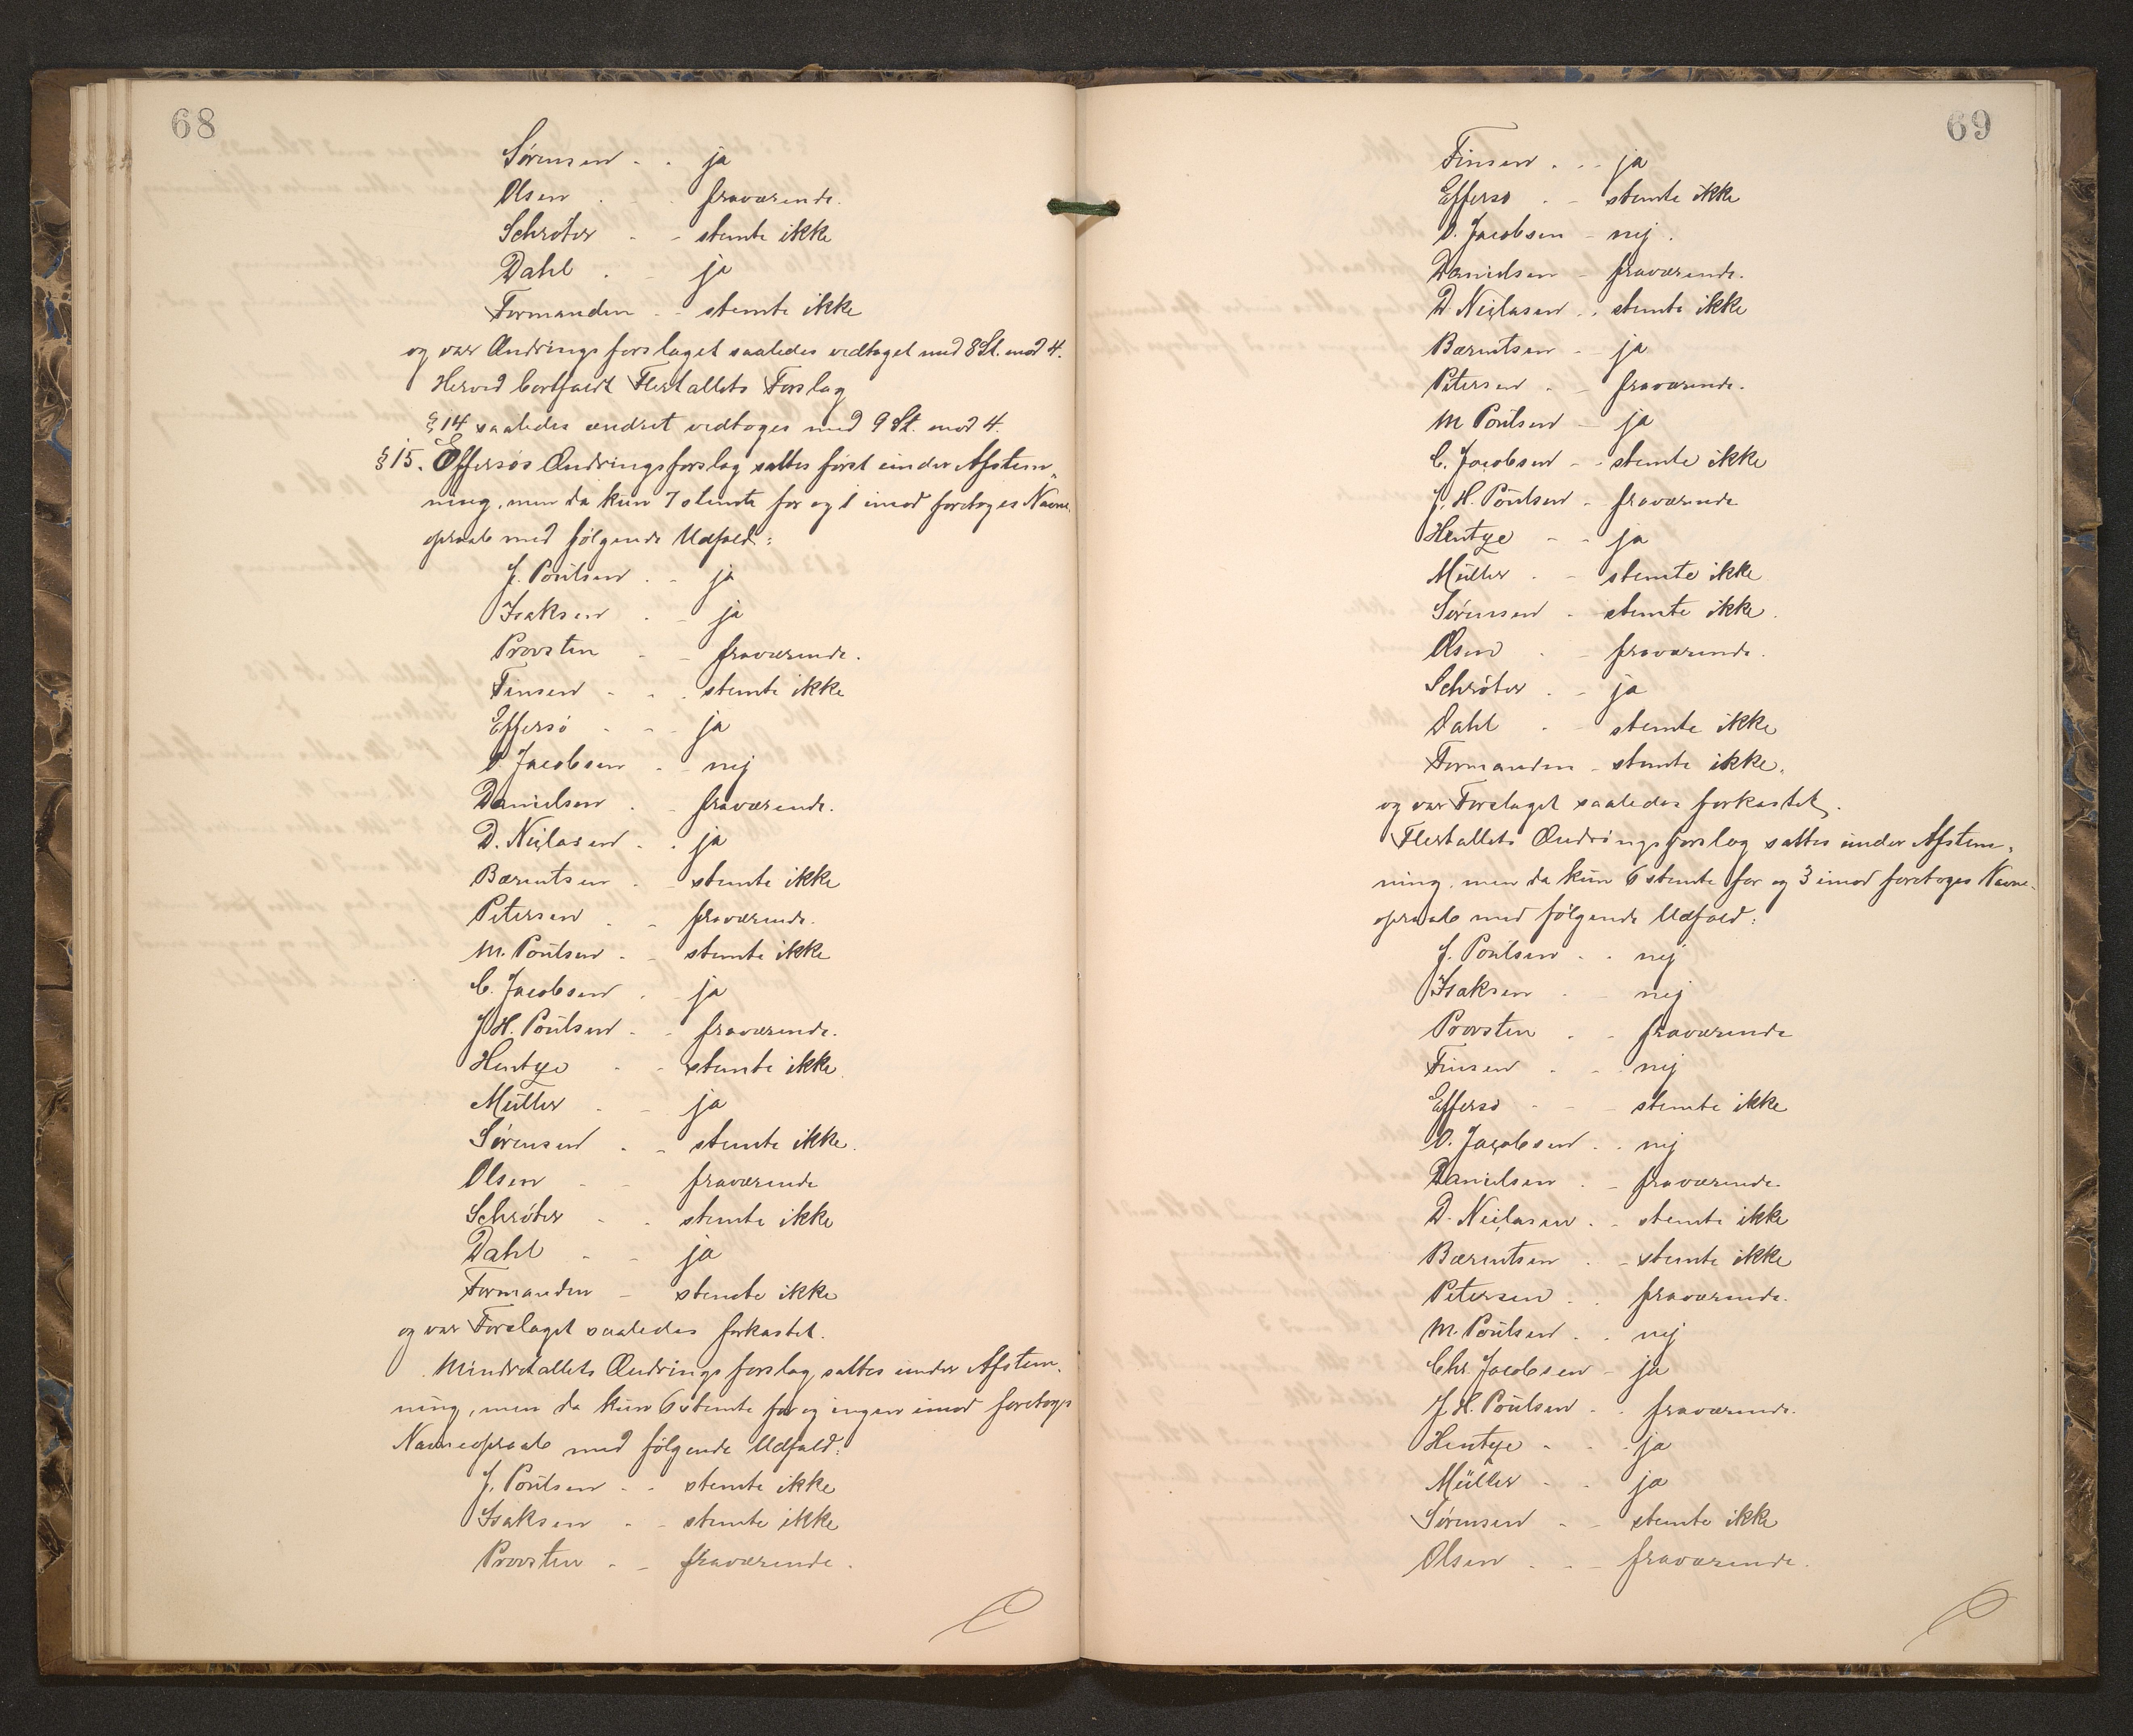 68
Sørensen - - ja
Olsen - - fraværende.
Schrøter - - stemte ikke
Dahl - - ja
Formanden - - stemte ikke
og var Ændringsforslaget saaledes vedtaget med 8 St. mod 4.
Herved bortfaldt Flertallets Forslag
§ 14 saaledes ændret vedtoges med 9 St. mod 4.
§ 15. Effersøs Ændringsforslag sattes først under Afstem-
ning, men da kun 7 stemte for og 1 imod foretoges Navne-
opraab med følgende Udfald:
J. Poulsen - - ja
Isaksen - - ja
Provsten - - fraværende.
Finsen - - stemte ikke
Effersø - - ja
O. Jacobsen - - nej
Danielsen - - fraværende.
D. Niclasen - - ja
Bærentsen - - stemte ikke
Petersen - - fraværende.
M. Poulsen - - stemte ikke
C. Jacobsen - - ja
J.H. Poulsen - - fraværende.
Hentze - - stemte ikke.
Müller - - ja
Sørensen - - stemte ikke.
Olsen - - fraværende
Schrøter - - stemte ikke
Dahl - - ja
Formanden - stemte ikke
og var Forslaget saaledes forkastet.
Mindretallets Ændringsforslag sattes under Afstem-
ning, men da kun 6 stemte for og ingen imod foretoges
Navneopraab med følgende Udfald:
J. Poulsen - - stemte ikke
Isaksen - - stemte ikke
Provsten - - fraværende.
69
Finsen - - ja
Effersø - - stemte ikke
O. Jacobsen - nej.
Danielsen - fraværende.
D. Niclasen - - stemte ikke
Bærentsen - ja
Petersen - - fraværende.
M Poulsen - ja
C. Jacobsen - - stemte ikke
J.H. Poulsen - fraværende
Hentze - - ja
Müller - - stemte ikke
Sørensen - stemte ikke.
Olsen - - fraværende.
Schrøter - - ja
Dahl - - stemte ikke
Formanden - stemte ikke.
og var Forslaget saaledes forkastet.
Flertallets Ændringsforslag sattes under Afstem-
ning, men da kun 6 stemte for og 3 imod foretoges Navne-
opraab med følgende Udfald:
J. Poulsen - - nej
Isaksen - - nej
Provsten - - fraværende
Finsen - - nej
Effersø - - stemte ikke
O. Jacobsen - - nej
Danielsen - - fraværende.
D. Niclasen - - stemte ikke
Bærentsen - - stemte ikke
Petersen - - fraværende.
M. Poulsen - - nej
Chr. Jacobsen - ja
J.H. Poulsen - - fraværende.
Hentze - - ja
Müller - - ja
Sørensen - - stemte ikke
Olsen - - fraværende.